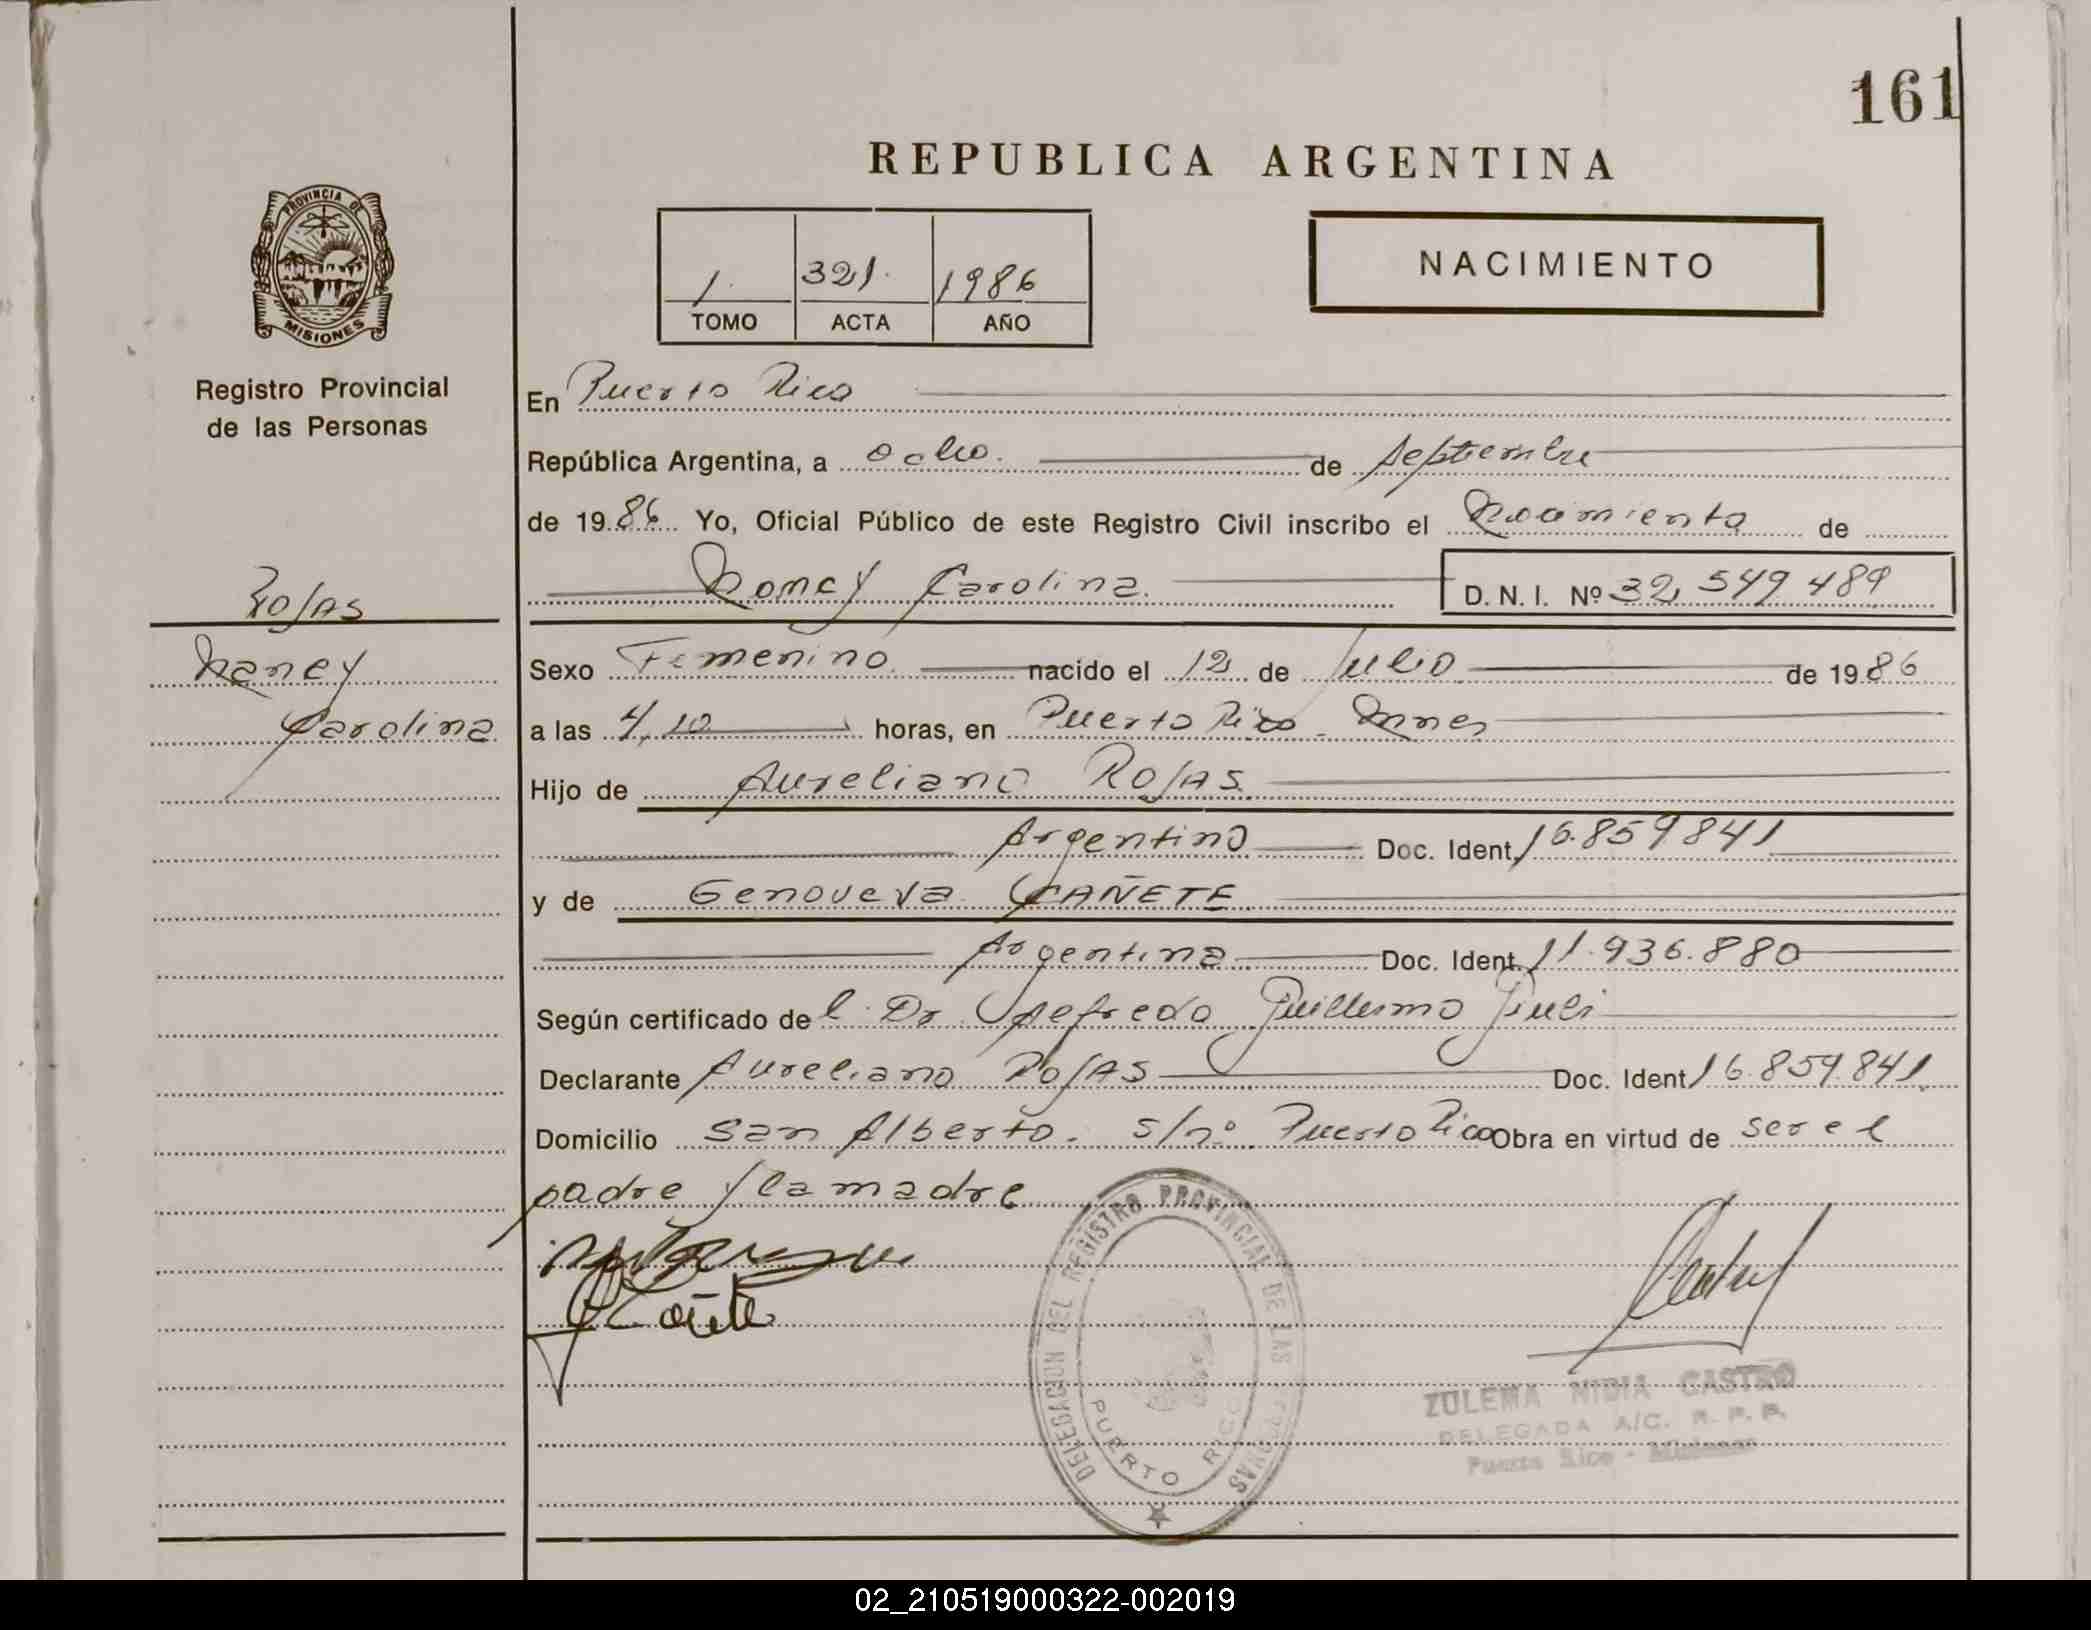 161
REPUBLICA ARGENTINA
PROVINCIA DE
MISIONES
1. 321. 1986
TOMO ACTA AÑO
NACIMIENTO
Registro Provincial
de las Personas
ROJAS
Nancy
Carolina
En Puerto Rico
República Argentina, a ocho. de septiembre
de 1986 Yo, Oficial Público de este Registro Civil inscribo el Nacimiento de
Nancy Carolina. D. N. I. Nº 32,549 489
Sexo Femenino nacido el 12 de Julio de 1986
a las 4,10 horas, en Puerto Rico - Mnes
Hijo de Aureliano ROJAS
Argentino Doc. Ident. 16.859 841
y de Genoveva CAÑETE
Argentina Doc. Ident. 11.936.880
Según certificado del Dr. Guillermo
Declarante Aureliano ROJAS Doc. Ident 16.859.841.
Domicilio San Alberto. s/nº Puerto Rico Obra en virtud de ser el
padre y la madre
Cañete
DELEGACION DEL REGISTRO PROVINCIAL DE LAS PERSONAS
PUERTO RICO
ZULEMA NIDIA CASTRO
DELEGADA A/C. R. P. P.
Puerto Rico - Misiones
02_210519000322-002019